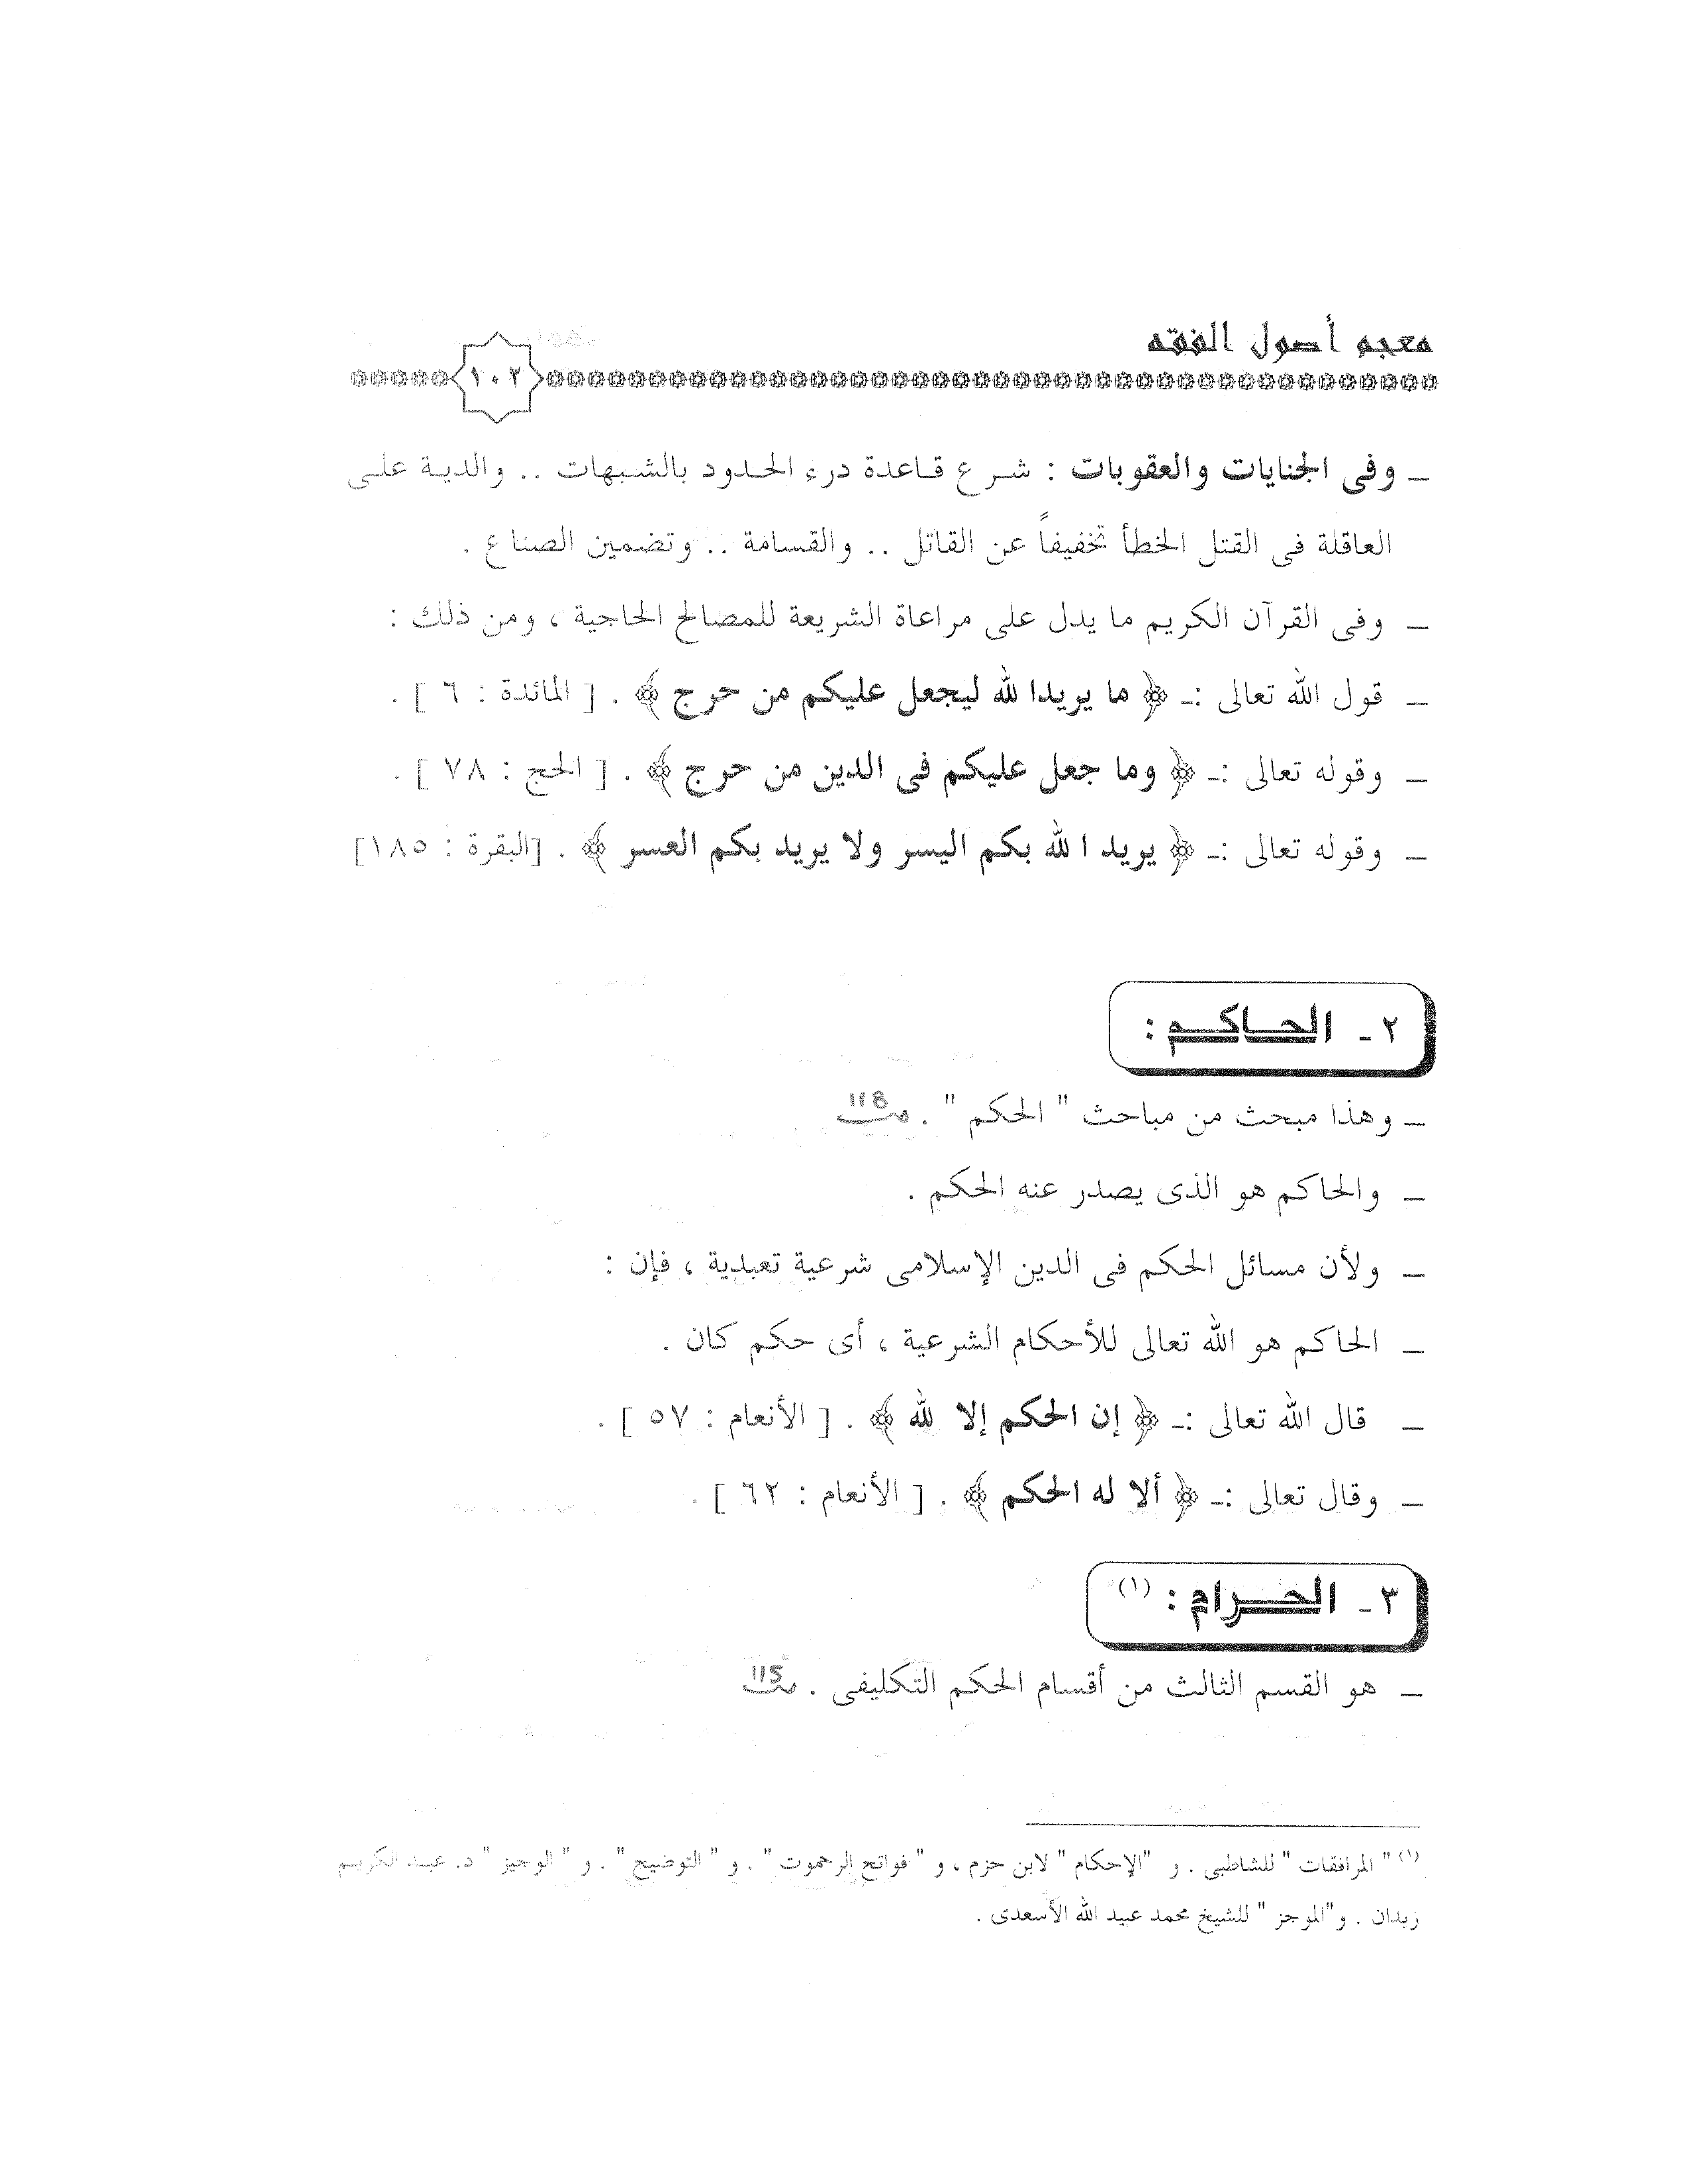 معجم أصول الفقه
١٠٢
ـ وفى الجنايات والعقوبات : شرع قاعدة درء الحدود بالشبهات .. والدية على
العاقلة فى القتل الخطأ تخفيفاً عن القاتل .. والقسامة .. وتضمين الصناع .
ـ وفى القرآن الكريم ما يدل على مراعاة الشريعة للمصالح الحاجية ، ومن ذلك :
ـ قول الله تعالى :ـ ﴿ ما يريدا لله ليجعل عليكم من حرج ﴾ . [ المائدة : ٦ ] .
ـ وقوله تعالى :ـ ﴿ وما جعل عليكم فى الدين من حرج ﴾ . [ الحج : ٧٨ ] .
ـ وقوله تعالى :ـ ﴿ يريد ا لله بكم اليسر ولا يريد بكم العسر ﴾ . [البقرة : ١٨٥]
٢ ـ الحاكم :
ـ وهذا مبحث من مباحث " الحكم " . 118
ـ والحاكم هو الذى يصدر عنه الحكم .
ـ ولأن مسائل الحكم فى الدين الإسلامى شرعية تعبدية ، فإن :
ـ الحاكم هو الله تعالى للأحكام الشرعية ، أى حكم كان .
ـ قال الله تعالى :ـ ﴿ إن الحكم إلا لله ﴾ . [ الأنعام : ٥٧ ] .
ـ وقال تعالى :ـ ﴿ ألا له الحكم ﴾ . [ الأنعام : ٦٢ ] .
٣ ـ الحرام : (١)
ـ هو القسم الثالث من أقسام الحكم التكليفى . 115
(١) " الموافقات " للشاطبى . و "الإحكام " لابن حزم ، و " فواتح الرحموت " . و " التوضيح " . و " الوجيز " د. عبد الكريم
زيدان . و"الموجز " للشيخ محمد عبيد الله الأسعدى .